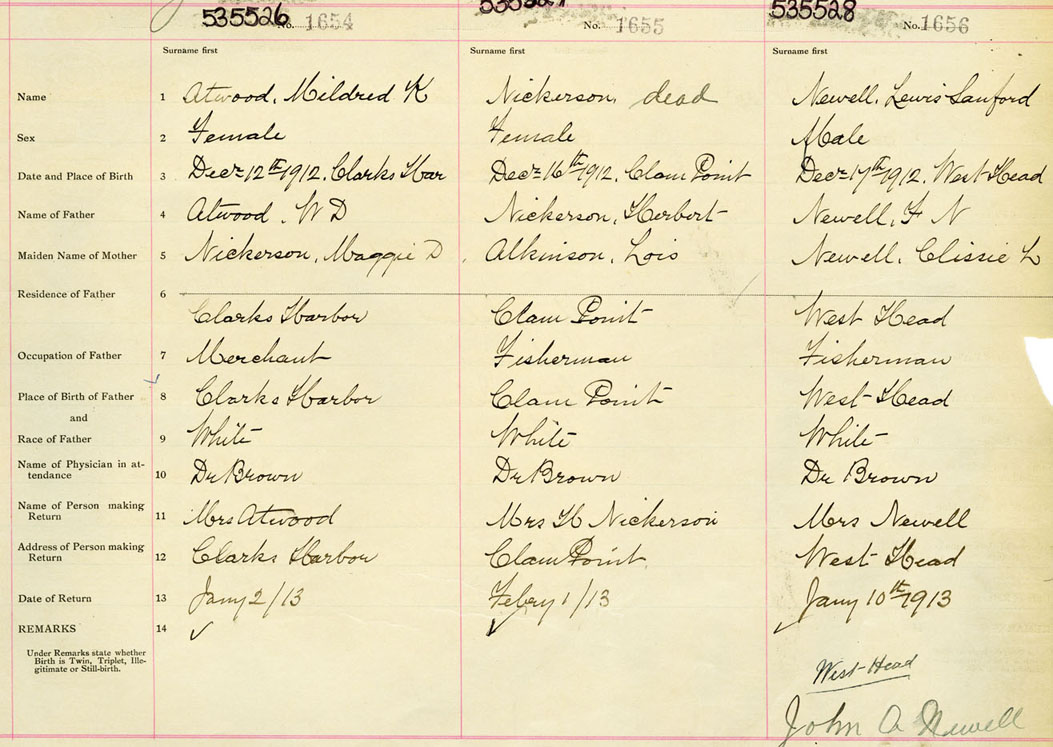 535526 No. 1654
No. 1655
535528 No. 1656
Surname first Surname first Surname first
Name 1 Atwood, Mildred K Nickerson, dead Newell, Lewis Sanford
Sex 2 Female Female Male
Date and Place of Birth 3 Decr 12th 1912, Clarks Har Decr 16th 1912, Clam Point Decr 17th 1912, West Head
Name of Father 4 Atwood, W D Nickerson, Herbert Newell, F N
Maiden Name of Mother 5 Nickerson, Maggie D Atkinson, Lois Newell, Clissie L
Residence of Father 6
Clarks Harbor Clam Point West Head
Occupation of Father 7 Merchant Fisherman Fisherman
Place of Birth of Father 8 Clarks Harbor Clam Point West Head
and
Race of Father 9 White White White
Name of Physician in at-
tendance 10 Dr Brown Dr Brown Dr Brown
Name of Person making
Return 11 Mrs Atwood Mrs H Nickerson Mrs Newell
Address of Person making
Return 12 Clarks Harbor Clam Point West Head
Date of Return 13 Jany 2/13 Febry 1/13 Jany 10th 1913
REMARKS 14
Under Remarks state whether
Birth is Twin, Triplet, Ille-
gitimate or Still-birth.
West Head
John A Newell